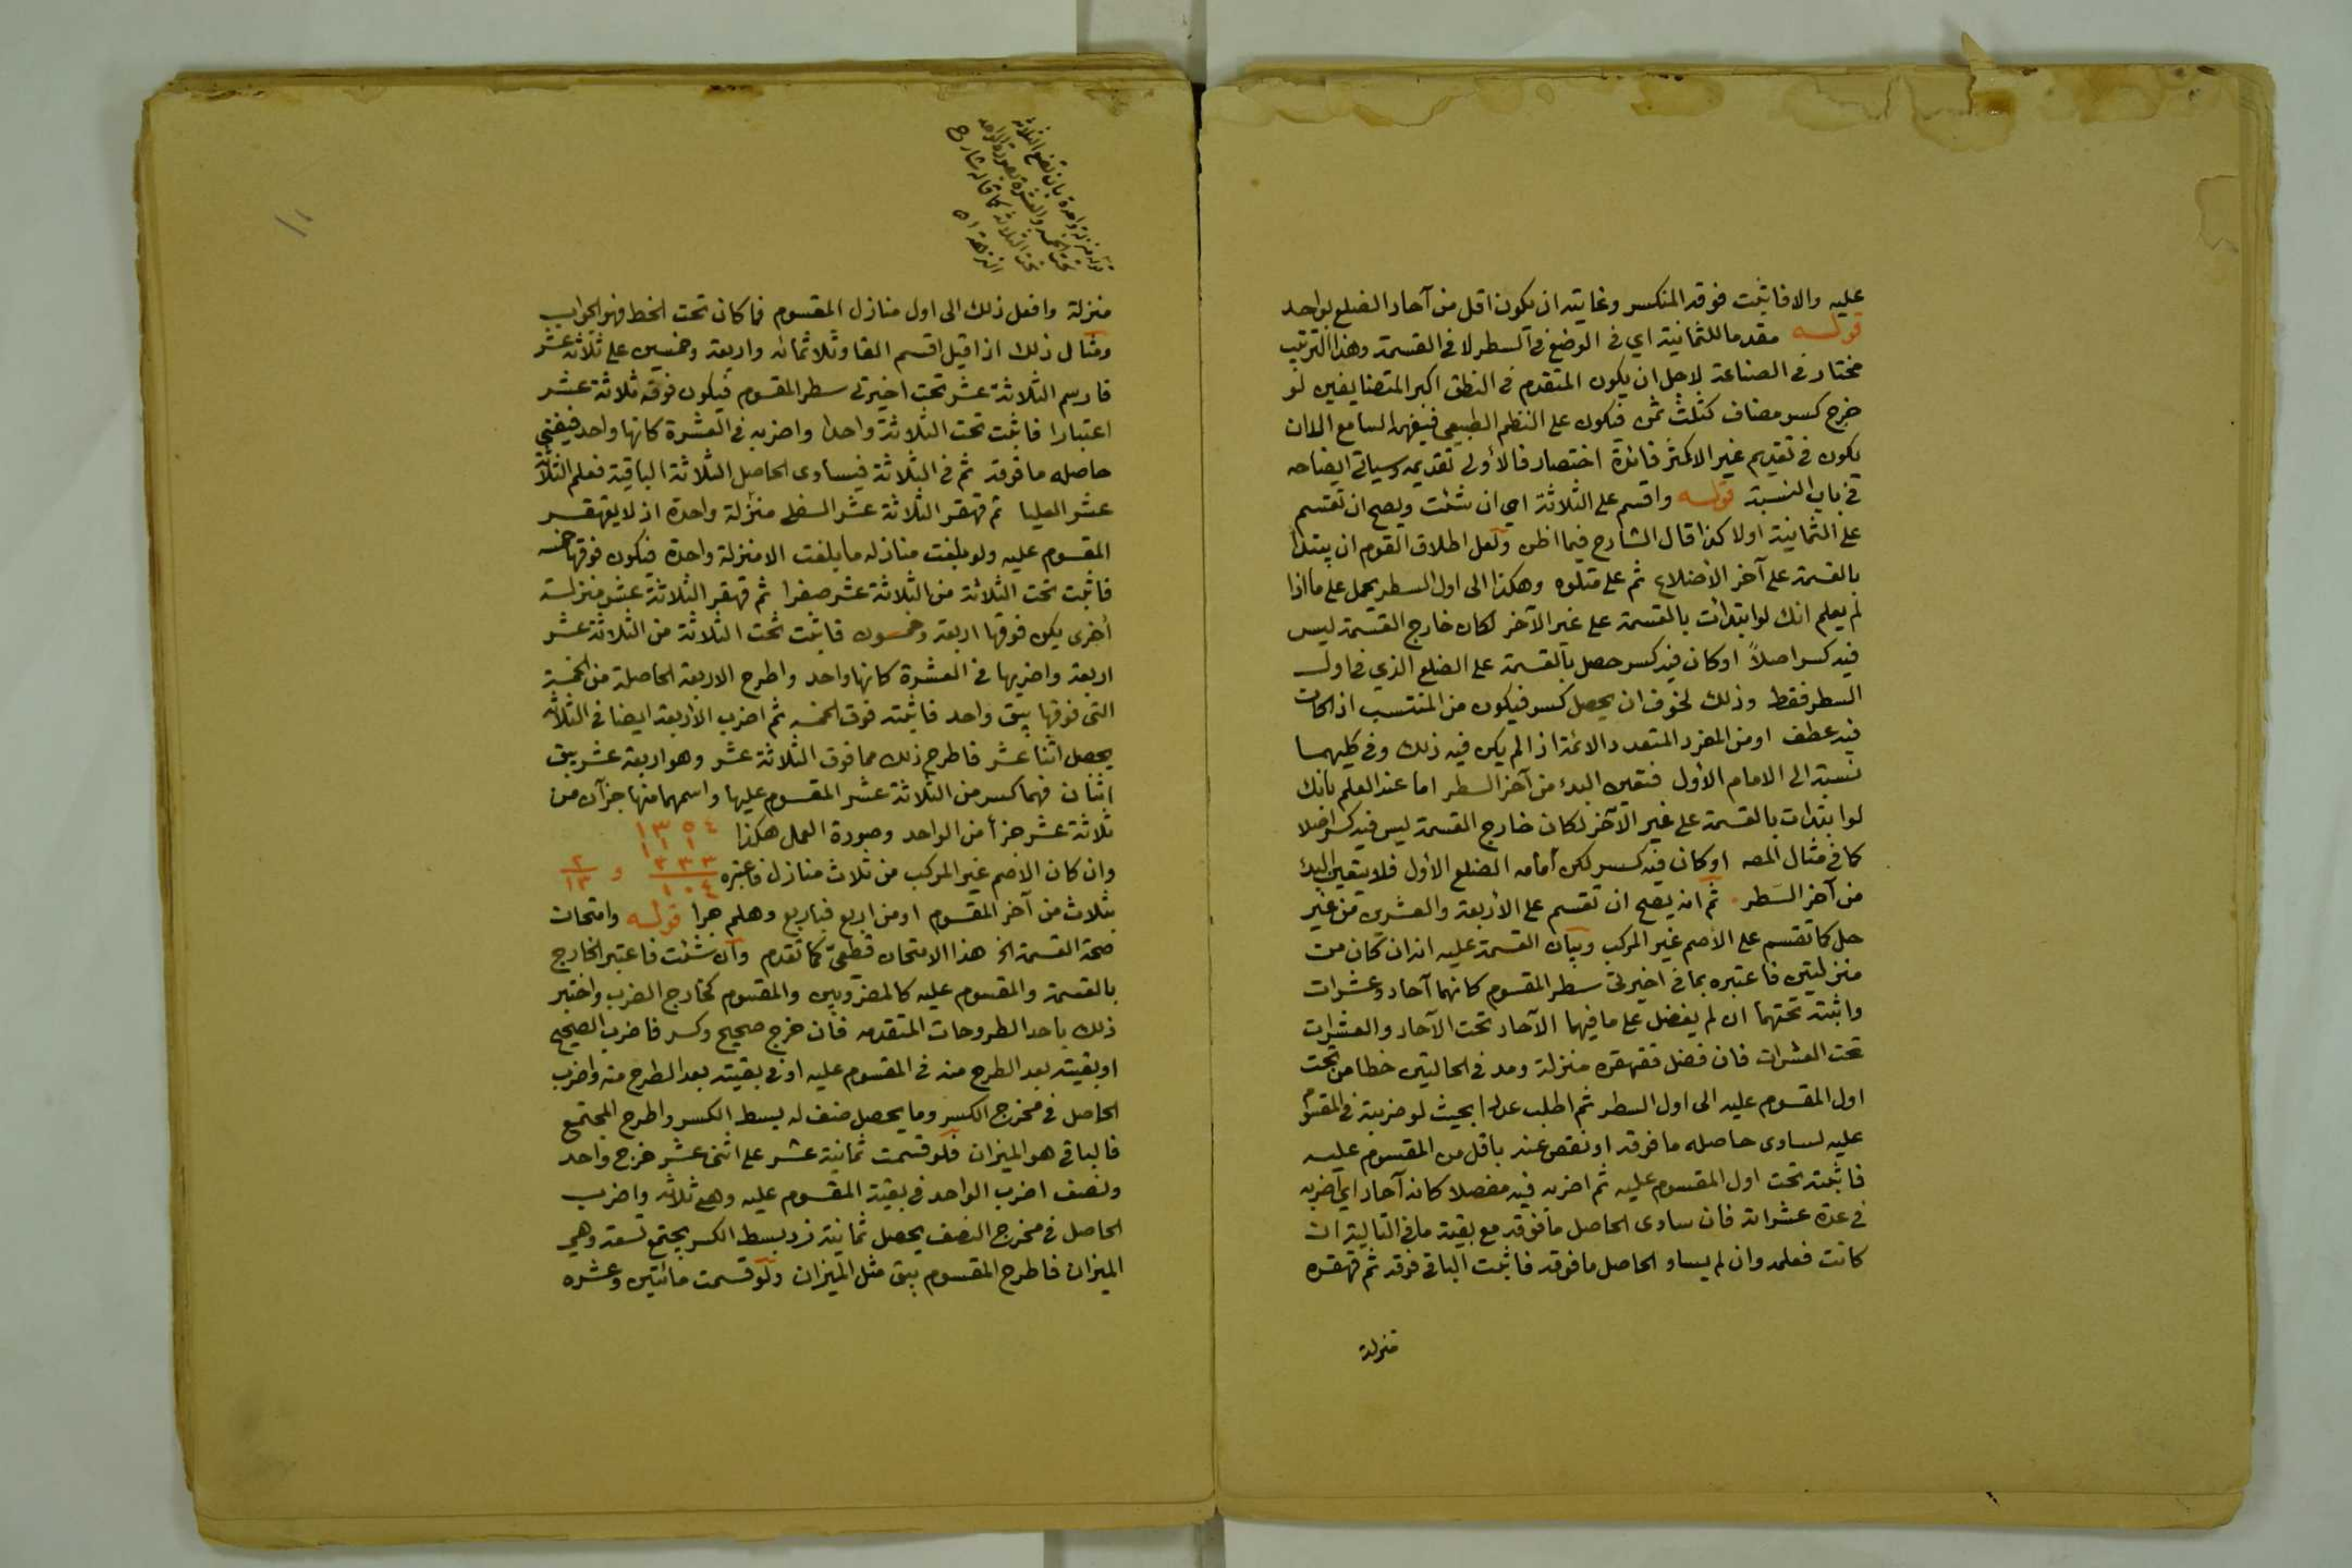 عليه والا فاثبت فوقه المنكسر وغايته ان يكون اقل من آحاد الضلع بواحد
قوله مقدما للثمانية اي في الوضع في السطر لا في القسمة وهذا الترتيب
مختار في الصناعة لاجل ان يكون المتقدم في النطق اكبر المتضايفين لو
خرج كسر مضاف كثلث ثمن فيكون على النظم الطبيعي فيفهمه السامع الا ان
يكون في تقديم غير الاكبر فائدة اختصار فالأولى تقديمه وسياتي ايضاحه
في باب النسبة قوله واقسم على الثلاثة اي ان شئت ويصح ان تقسم
على الثمانية اولا كذا قال الشارح فيما اظن ولعل اطلاق القوم ان يبتدأ
بالقسمة على آخر الأضلاع ثم على متلوه وهكذا الى اول السطر يحمل على ما اذا
لم يعلم انك لو ابتدأت بالقسمة على غير الآخر لكان خارج القسمة ليس
فيه كسر اصلاً او كان فيه كسر حصل بالقسمة على الضلع الذي في اول
السطر فقط وذلك لخوف ان يحصل كسر فيكون من المنتسب اذا كان
فيه عطف او من المفرد المتعدد الائمة اذا لم يكن فيه ذلك وفي كليهما
نسبة الى الامام الأول فتعين البدء من آخر السطر اما عند العلم بانك
لو ابتدات بالقسمة على غير الآخر لكان خارج القسمة ليس فيه كسر اصلا
كما في مثال المصـ او كان فيه كسر لكن أمامه الضلع الأول فلا يتعين البدء
من آخر السَطر ثم انه يصح ان تقسم على الأربعة والعشرين من غير
حل كما تقسم على الأصم غير المركب وبيان القسمة عليه انه ان كان من
منزلتين فاعتبره بما في اخيرتي سطر المقسوم كانهما آحاد وعشرات
واثبته تحتهما ان لم يفضل على ما فيهما الآحاد تحت الآحاد والعشرات
تحت العشرات فان فضل فقهقره منزلة ومد في الحالتين خطا من تحت
اول المقسوم عليه الى اول السطر ثم اطلب عددا بحيث لو ضربته في المقسوم
عليه لساوى حاصله ما فوقه او نقص عنه باقل من المقسوم عليه
فاثبته تحت اول المقسوم عليه ثم اضربه فيه مفصلا كانه آحاد اي اضربه
في عدة عشراته فان ساوى الحاصل ما فوقه مع بقية ما في التالية ان
كانت فعلمه وان لم يساو الحاصل ما فوقه فاثبت الباقي فوقه ثم قهقره
منزلة
قوله منزلة واحدة بان تضع الثلاثة
تحت الخمسة والعشرة بصورة الواحد
تحت الثلاثة كما قاله شارح
النزهة اه
منزلة وافعل ذلك الى اول منازل المقسوم فما كان تحت الخط فهو الجواب
ومثال ذلك اذا قيل اقسم الفا وثلاثمائه واربعة وخمسين على ثلاثة عشر
فارسم الثلاثة عشر تحت اخيرتي سطر المقسوم فيكون فوقه ثلاثة عشر
اعتبارا فاثبت تحت الثلاثة واحدا واضربه في العشرة كانها واحد فيفنى
حاصله ما فوقه ثم في الثلاثة فيساوى الحاصل الثلاثة الباقية فعلم الثلاثة
عشر العليا ثم قهقر الثلاثة عشر السفلى منزلة واحدة اذ لا يقهقر
المقسوم عليه ولو بلغت منازله ما بلغت الا منزلة واحدة فيكون فوقها خمسه
فاثبت تحت الثلاثة من الثلاثة عشر صفرا ثم قهقر الثلاثة عشر منزلة
أخرى يكن فوقها اربعة وخمسون فاثبت تحت الثلاثة من الثلاثة عشر
اربعة واضربها في العشرة كانها واحد واطرح الاربعة الحاصلة من الخمسة
التى فوقها يبق واحد فاثبته فوق الخمسه ثم اضرب الأربعة ايضا في الثلاثه
يحصل اثنا عشر فاطرح ذلك مما فوق الثلاثة عشر وهو اربعة عشر يبق
اثنان فهما كسر من الثلاثة عشر المقسوم عليها واسمهما منها جزآن من
ثلاثة عشر جزأ من الواحد وصورة العمل هكذا ١ ٣ ٥ ٤
١ ١ ١
وان كان الاصم غير المركب من ثلاث منازل فاعتبره ٣ ٣ ٣ و ٢
١ ٠ ٤ ١٣
بثلاث من آخر المقسوم او من اربع فباربع وهلم جرا قوله وامتحان
صحة القسمة الخ هذا الامتحان قطعيّ كما تقدم وان شئت فاعتبر الخارج
بالقسمة والمقسوم عليه كالمضروبين والمقسوم كخارج الضرب واختبر
ذلك باحد الطروحات المتقدمه فان خرج صحيح وكسر فاضرب الصحيح
او بقيته بعد الطرح منه في المقسوم عليه او في بقيته بعد الطرح منه واضرب
الحاصل في مخرج الكسر وما يحصل ضف له بسط الكسر واطرح المجتمع
فالباقي هو الميزان فلو قسمت ثمانية عشر على اثنى عشر خرج واحد
ونصف اضرب الواحد في بقية المقسوم عليه وهي ثلاثه واضرب
الحاصل في مخرج النصف يحصل ثمانية زد بسط الكسر يجتمع تسعة وهي
الميزان فاطرح المقسوم يبق مثل الميزان ولو قسمت مائتين وعشره